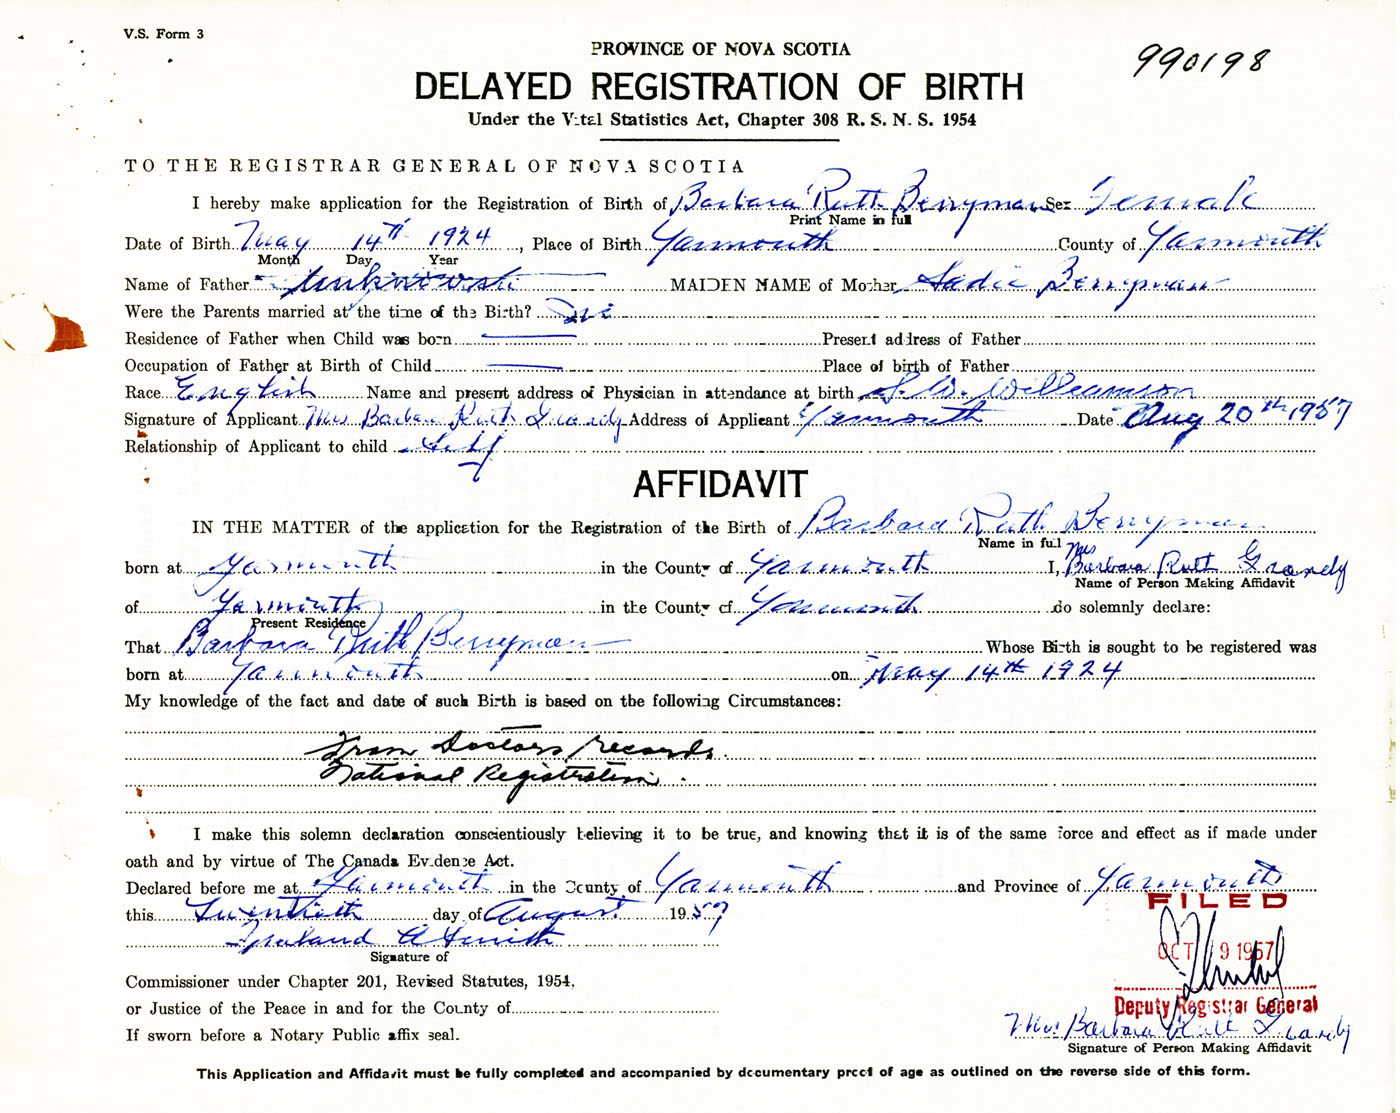 V.S. Form 3
PROVINCE OF NOVA SCOTIA
990198
DELAYED REGISTRATION OF BIRTH
Under the Vital Statistics Act, Chapter 308 R. S. N. S. 1954
TO THE REGISTRAR GENERAL OF NOVA SCOTIA
I hereby make application for the Registration of Birth of Barbara Ruth Berryman Sex Female
Print Name in full
Date of Birth May 14th 1924, Place of Birth Yarmouth County of Yarmouth
Month Day Year
Name of Father MAIDEN NAME of Mother Sadie Berryman
Were the Parents married at the time of the Birth?
Residence of Father when Child was born Present address of Father
Occupation of Father at Birth of Child Place of birth of Father
Race English Name and present address of Physician in attendance at birth S. W. Williamson
Signature of Applicant Mrs Barbara Ruth Grandy Address of Applicant Yarmouth Date Aug 20th, 1957
Relationship of Applicant to child Self
AFFIDAVIT
IN THE MATTER of the application for the Registration of the Birth of Barbara Ruth Berryman
Name in full
born at Yarmouth in the County of Yarmouth I, Mrs Barbara Ruth Grandy
Name of Person Making Affidavit
of Yarmouth in the County of Yarmouth do solemnly declare:
Present Residence
That Barbara Ruth Berryman Whose Birth is sought to be registered was
born at Yarmouth on May 14th 1924
My knowledge of the fact and date of such Birth is based on the following Circumstances:
From Doctors records.
National Registration.
I make this solemn declaration conscientiously believing it to be true, and knowing that it is of the same force and effect as if made under
oath and by virtue of The Canada Evidence Act.
Declared before me at Yarmouth in the County of Yarmouth and Province of Yarmouth
this Twentieth day of August 1957
FILED
A Smith
Signature of
OCT 9 1957
Commissioner under Chapter 201, Revised Statutes, 1954,
Deputy Registrar General
or Justice of the Peace in and for the County of
Mrs Barbara Ruth Grandy
If sworn before a Notary Public affix seal.
Signature of Person Making Affidavit
This Application and Affidavit must be fully completed and accompanied by documentary proof of age as outlined on the reverse side of this form.